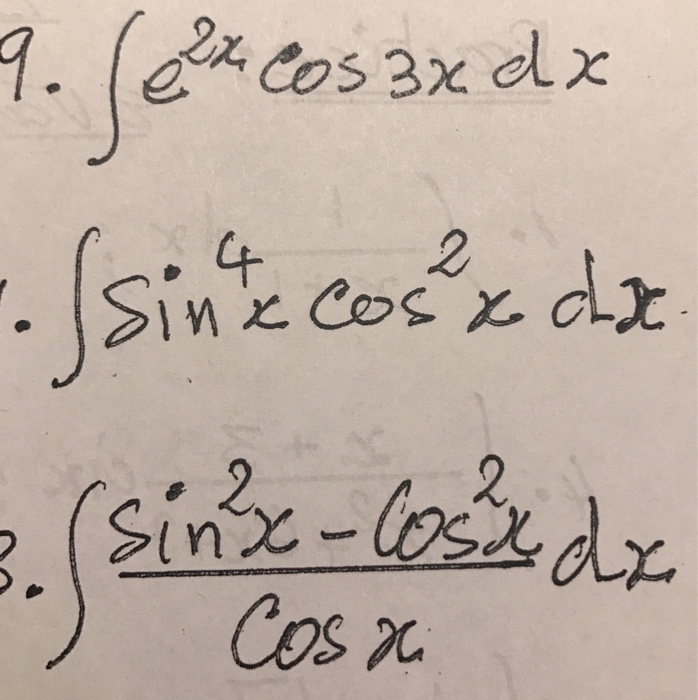 9. ∫e²ˣ cos 3x dx
. ∫sin⁴x cos²x dx
3. ∫(sin²x - cos²x)/cos x dx